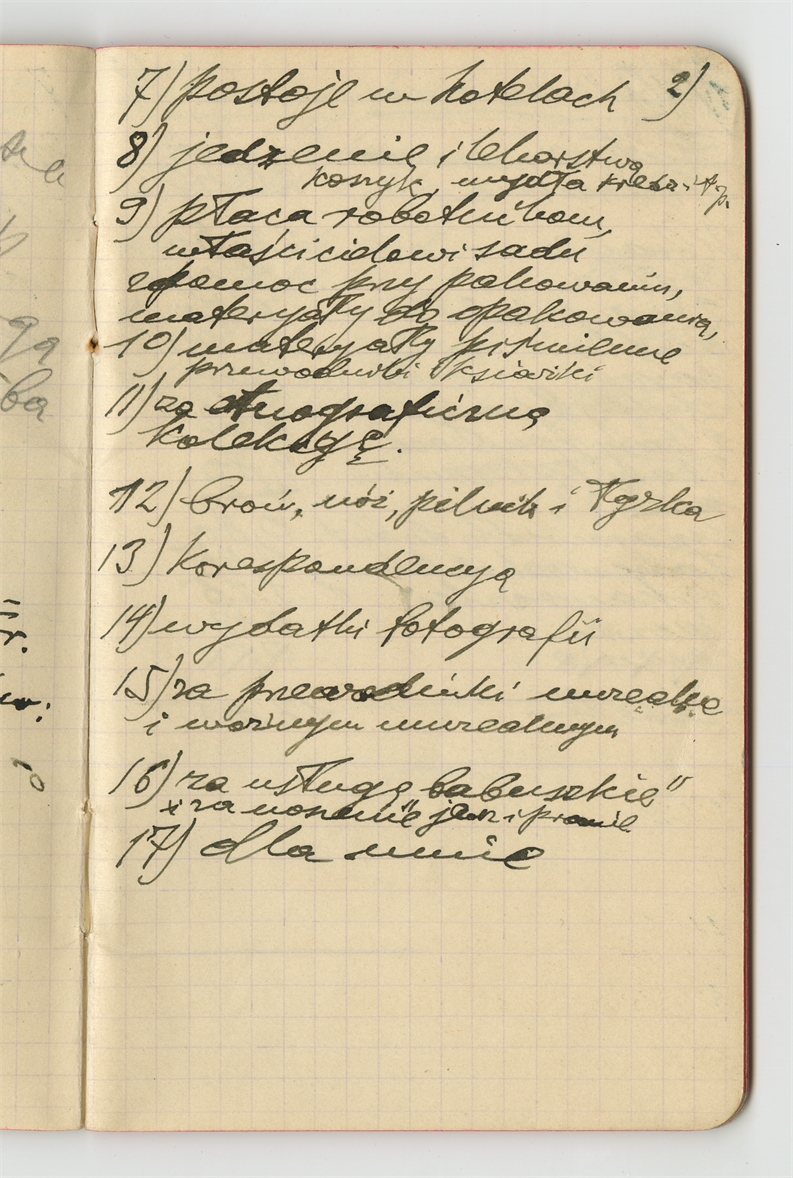 2)
7) postoje w hotelach
8) jedzenie i lekarstwa
koszyk, mydła kresz. i t p.
9) płaca robotnikom,
właścicielowi sadu
pomoc przy pakowaniu,
materyały do opakowania,
10) materyały piśmienne
przewodniki książki
11) za etnograficzną
kolekcyę.
12) broń, nóż, pilnik i łyżka
13) Korespondencya
14) wydatki fotografii
15) za przewodniki
i woźnym muzealnym
16) za usługę babuszkie"
i za noszenie i pranie
17) dla mnie